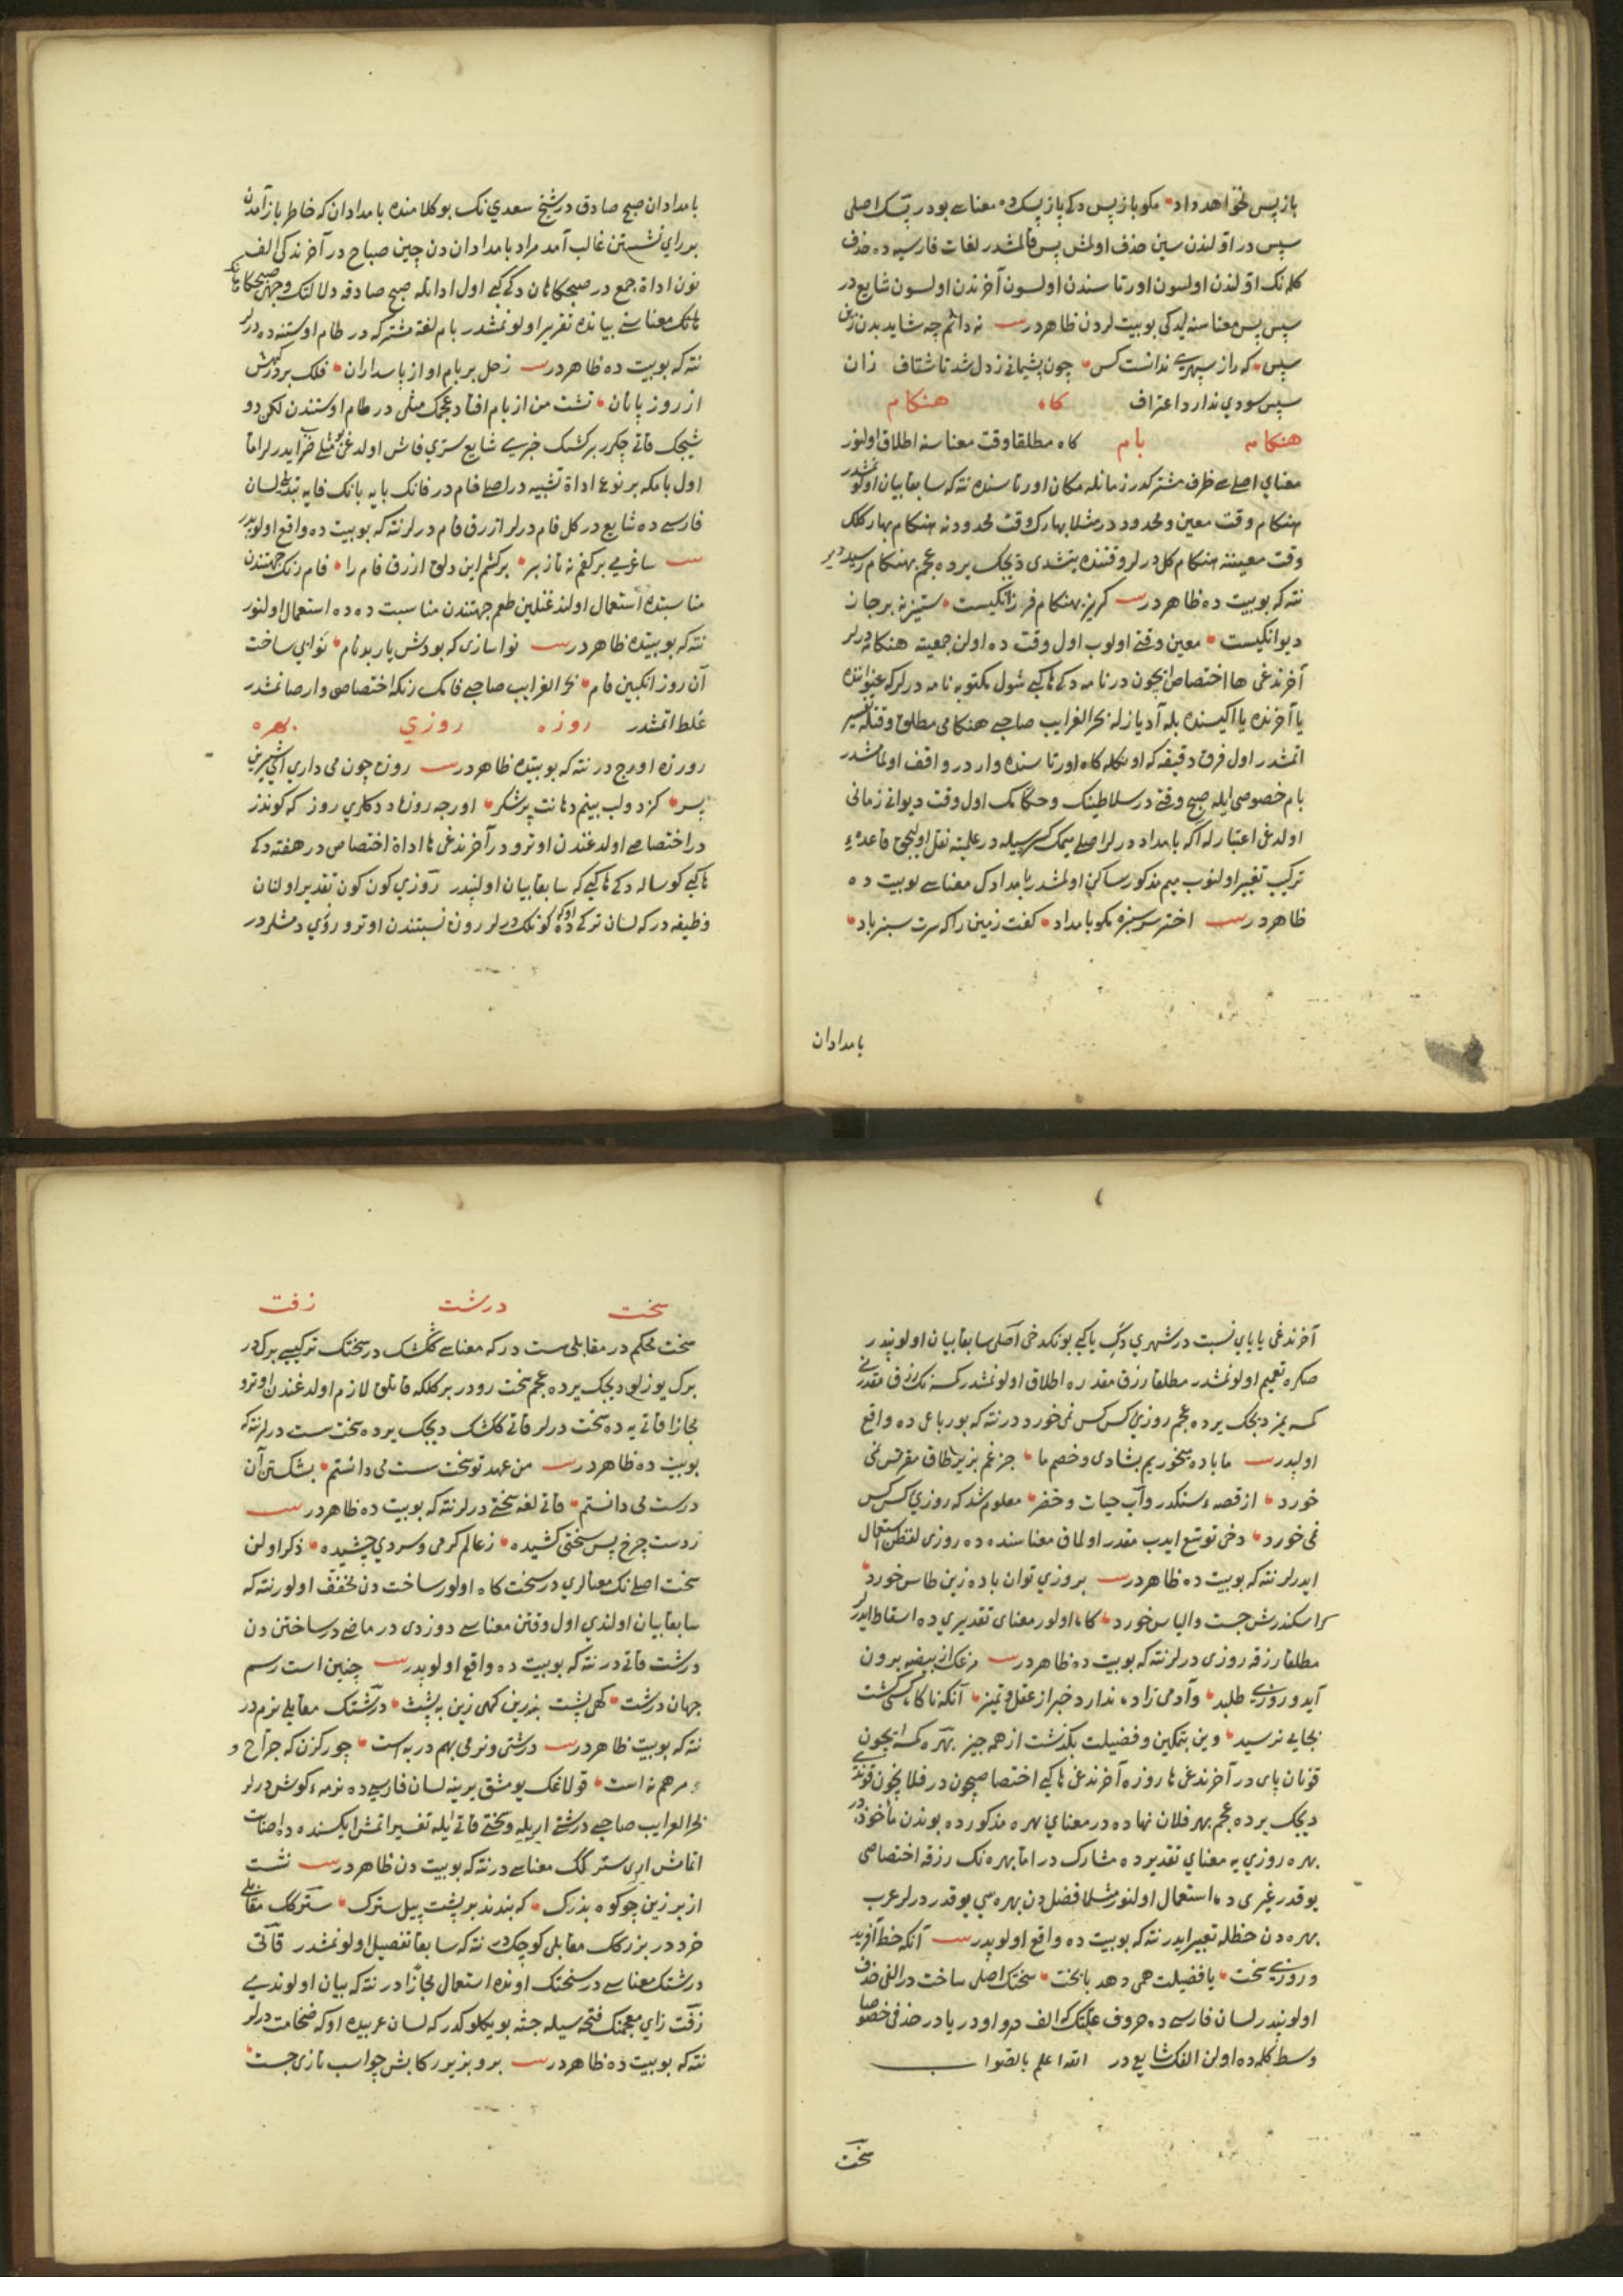 باز پس نخواهد داد مکو باز پس دکی باز پسک ده معناسی بودر پسک اصلی
سپس در اولندن سین حذف اولمش پس قالمشدر لغات فارسیه ده حذف
کلمه نک اولندن اولسون اورتاسندن اولسون آخرندن اولسون شایع در
سپس پس معناسنه لیدکی بو بیت لردن ظاهر در نه دانم چه شاید بدن زین
سپس که راز سپهری ندانست کس چون پشیمانی ز دل شد تا شتاف زان
سپس سودی ندارد اعتراف کاه هنکام
هنکامه بام کاه مطلقا وقت معناسنه اطلاق اولنور
معنای اصلی سی ظرف مشترکدر زمانله مکان اورتاسنده نته که سابقا بیان اولنمشدر
هنکام وقت معین و محدود در مثلا بهارک وقت محدودنه هنکام بهار کلک
وقت معیننه هنکام کل درلر وقتنده یتشدی دیجک یرده عجم بهنکام رسید دیر
نته که بو بیت ده ظاهر در کریز بهنکام فرزانکیست ستیزنه بر جان
دیوانکیست معین وقتی اولوب اول وقت ده اولن جمعیته هنکامه درلر
آخرندغی ها اختصاص ایچون در نامه دکی ها کبی شول مکتوبه نامه درلر که عنواننده
یا آخرنده یا ایکیسنده بله آد یازله بحر الغرایب صاحبی هنکامی مطلق وقتله تفسیر
اتمشدر اول فرق دقیقه که اونکله کاه اورتاسنده وار در واقف اولمامشدر
بام خصوصی ایله صبح وقتی در سلاطینک و حکامک اول وقت دیوانی زمانی
اولدغی اعتبارله اکه بامداد درلر اصلی میمک کسریله در علمیته نقل اولیجق قاعده
ترکیب تغییر اولنوب میم مذکور ساکن اولمشدر بامدادک معناسی بو بیت ده
ظاهر در اختر سر سبزه مکو بامداد کفت زمین را که سرت سبز باد
بامدادان
بامدادان صبح صادق در شیخ سعدی نک بو کلامنده بامدادان که خاطر باز آمدن
بر رای نشستن غالب آمد مراد بامدادان دن چین صباح در آخرندکی الف
نون اداة جمع در صبحکاهان دکی کبی اول اداتله صبح صادقه دلالتک وجهی صبحکاهانک
هانک معناسنی بیانده تقریر اولونمشدر بام لغة مشترکه در طام اوستنه ده درلر
نته که بو بیت ده ظاهر در زحل بر بام او از پاسداران فلک بر درش
از روز بانان تشت من از بام افتاد عجمک مثلی در طام اوستندن لکن دو
شیجک قاتی چکرر بر کشک خبری شایع سری فاش اولدغن بو مثلی ضرب ایدرلر اما
اول بامکه بر نوع اداة تشبیه در اصلی فام در فانک بایه بانک فایه تبدلی لسان
فارسی ده شایع در کل فام درلر ازرق فام درلر نته که بو بیت ده واقع اولوبدر
ساغر می بر کفم نه تا ز بر بر کشم این دلق ازرق فام را فام رنک جهتندن
مناسبتده استعمال اولندغنلین طعم جهتندن مناسبت ده ده استعمال اولنور
نته که بو بیتده ظاهر در نوا سازی که بودش باربد نام نوایی ساخت
آن روز انکبین فام بحر الغرایب صاحبی فامک رنکه اختصاصی وار صانمشدر
غلط اتمشدر روزه روزی بهره
روزه اورج در نته که بو بیتده ظاهر در روزه چون می داری ای شیرین
پسر کز دو لب بینم دهانت پر شکر اورجه روزه دکلری روز که کوندز
در اختصاصی اولدغندن اوترو در آخرندغی ها اداة اختصاص در هفته دکی
ها کبی کوساله دکی ها کبی که سابقا بیان اولنپدر روزی کون کون تقدیر اولنان
وظیفه در که لسان ترکی ده اوکا کونلک درلر روزن نسبتندن اوترو روزی دمشلردر
آخرندغی یا یای نسبت در شهری دکی یا کبی بونکدخی اصلی سابقا بیان اولونپدر
صکره تعمیم اولونمشدر مطلقا رزق مقداره اطلاق اولونمشدر کسه نک رزق مقدرنی
کسه یمز دیجک یرده عجم روزی کس کس نمی خورد در نته که بو رباعی ده واقع
اولپدر ما باده میخوریم بشادی و خصم ما جز غم بزیر طاق مقرنس نمی
خورد از قصه سکندر و آب حیات و خضر معلوم شد که روزی کس کس
نمی خورد دخی توسع ایدب مقدر اولماق معناسنده ده روزی لفظن استعمال
ایدرلر نته که بو بیت ده ظاهر در بروزی توان باده زین طاس خورد
کرا سکندرش جست و الیاس خورد کاه اولور معنای تقدیری ده اسقاط ایدرلر
مطلقا رزقه روزی درلر نته که بو بیت ده ظاهر در مرغک از بیضه برون
آید و روزی طلبد وآدمی زاده ندارد خبر از عقل و تمیز آنکه ناکاه کسی کشت
بجایی نرسید وین بتمکین و فضیلت بکذشت از همه چیز بهره کسه ایچون
قونان پای در آخرندغی ها روزه آخرندغی ها کبی اختصاصیچون در فلان ایچون قوندی
دیجک یرده عجم بهر فلان نهاده در معنای بهره مذکورده بوندن مأخوذ در
بهره روزی یه معنای تقدیرده مشارک در اما بهره نک رزقه اختصاصی
یوقدر غیری ده استعمال اولنور مثلا فضل دن بهره سی یوقدر درلر عرب
بهره دن حظله تعبیر ایدر نته که بو بیت ده واقع اولوپدر آنکه حظ آفرید
و روزی سخت یا فضیلت همی دهد یا بخت سختک اصلی ساخت در الفی حذف
اولونپدر لسان فارسی ده حروف علتک که الف و واو در یا در حذفی خصوصا
وسط کلمه ده اولن الفک شایع در الله اعلم بالصواب
سخت
سخت درشت زفت
سخت محکم در مقابلی سست در که معناسی کشک در سختک ترکیبی برک در
برک یوزلو دیجک یرده عجم سخت رو در برکلکه قاتلق لازم اولدغندن اوترو
مجازا قاتی یه ده سخت درلر قاتی کشک دیجک یرده سخت سست درلر نته که
بو بیت ده ظاهر در من عهد تو سخت سست می دانستم بشکستن آن
درست می دانستم قاتی لغه سختی درلر نته که بو بیت ده ظاهر در
ز دست چرخ پس سختی کشیده ز عالم کرمی و سردی چشیده ذکر اولن
سخت اصلی نک معنالری در سخت کاه اولور ساخت دن مخفف اولور نته که
سابقا بیان اولندی اول وقتن معناسی دوزدی در ماضی در ساختن دن
درشت قاتی در نته که بو بیت ده واقع اولوپدر چنین است رسم
جهان درشت کهی پشت بزین کهی زین به پشت درشتک مقابلی نرم در
نته که بو بیت ظاهر در درشتی و نرمی بهم در به است چو رکزن که جراح و
مرهم نه است قولاغک یومشق یرینه لسان فارسی ده نرمه کوش درلر
بحر الغرایب صاحبی درشتی ایریلق و سختی قاتی ایله تفسیر اتمش ایکسنده ده اصابت
اتمامش ایری ستر کک معناسی در نته که بو بیت دن ظاهر در نشست
از بر زین چو کوه بزرک که بندند بر پشت پیل سترک سترکک مقابلی
خرد در بزرکک مقابلی کوچک در نته که سابقا تفصیل اولونمشدر قاتی
درشتک معناسی در سختک اونده استعمال مجازا در نته که بیان اولوندی
زفت زای معجمنک فتحه سیله جثه بیوکلوکدر که لسان عربیده اوکه ضخامت درلر
نته که بو بیت ده ظاهر در بر و بزیر رکابش چو اسب تازی جست